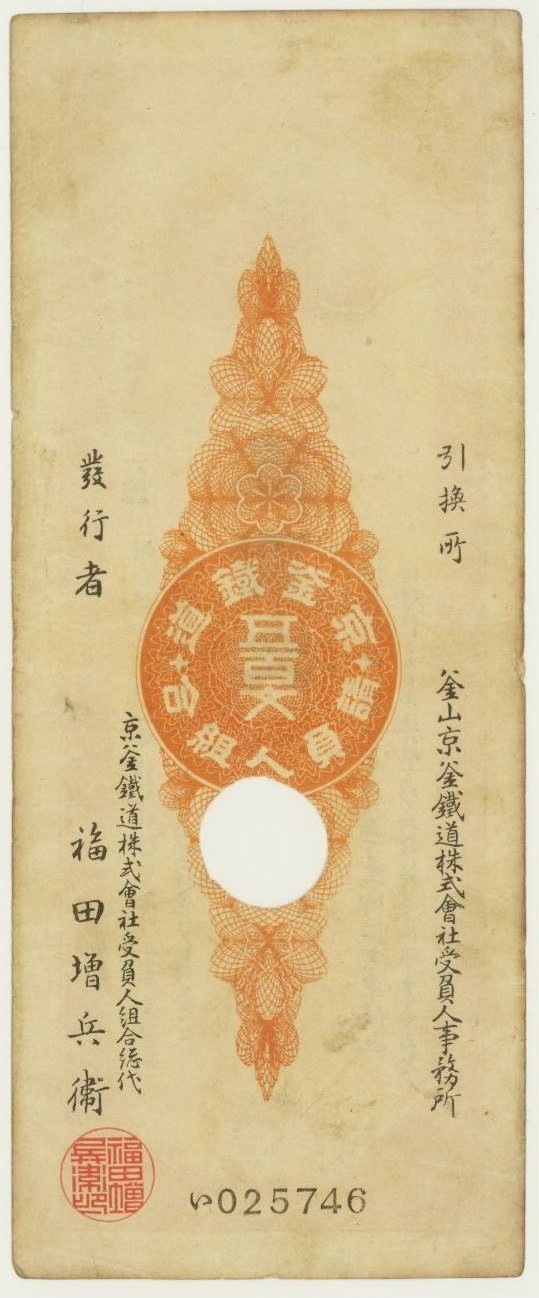 引換所
釜山京釜鐵道株式會社受負人事務所
京釜鐵道
請負人組合
五百文
發行者
京釜鐵道株式會社受負人組合総代
福田增兵衞
福田增
兵衞印
い025746